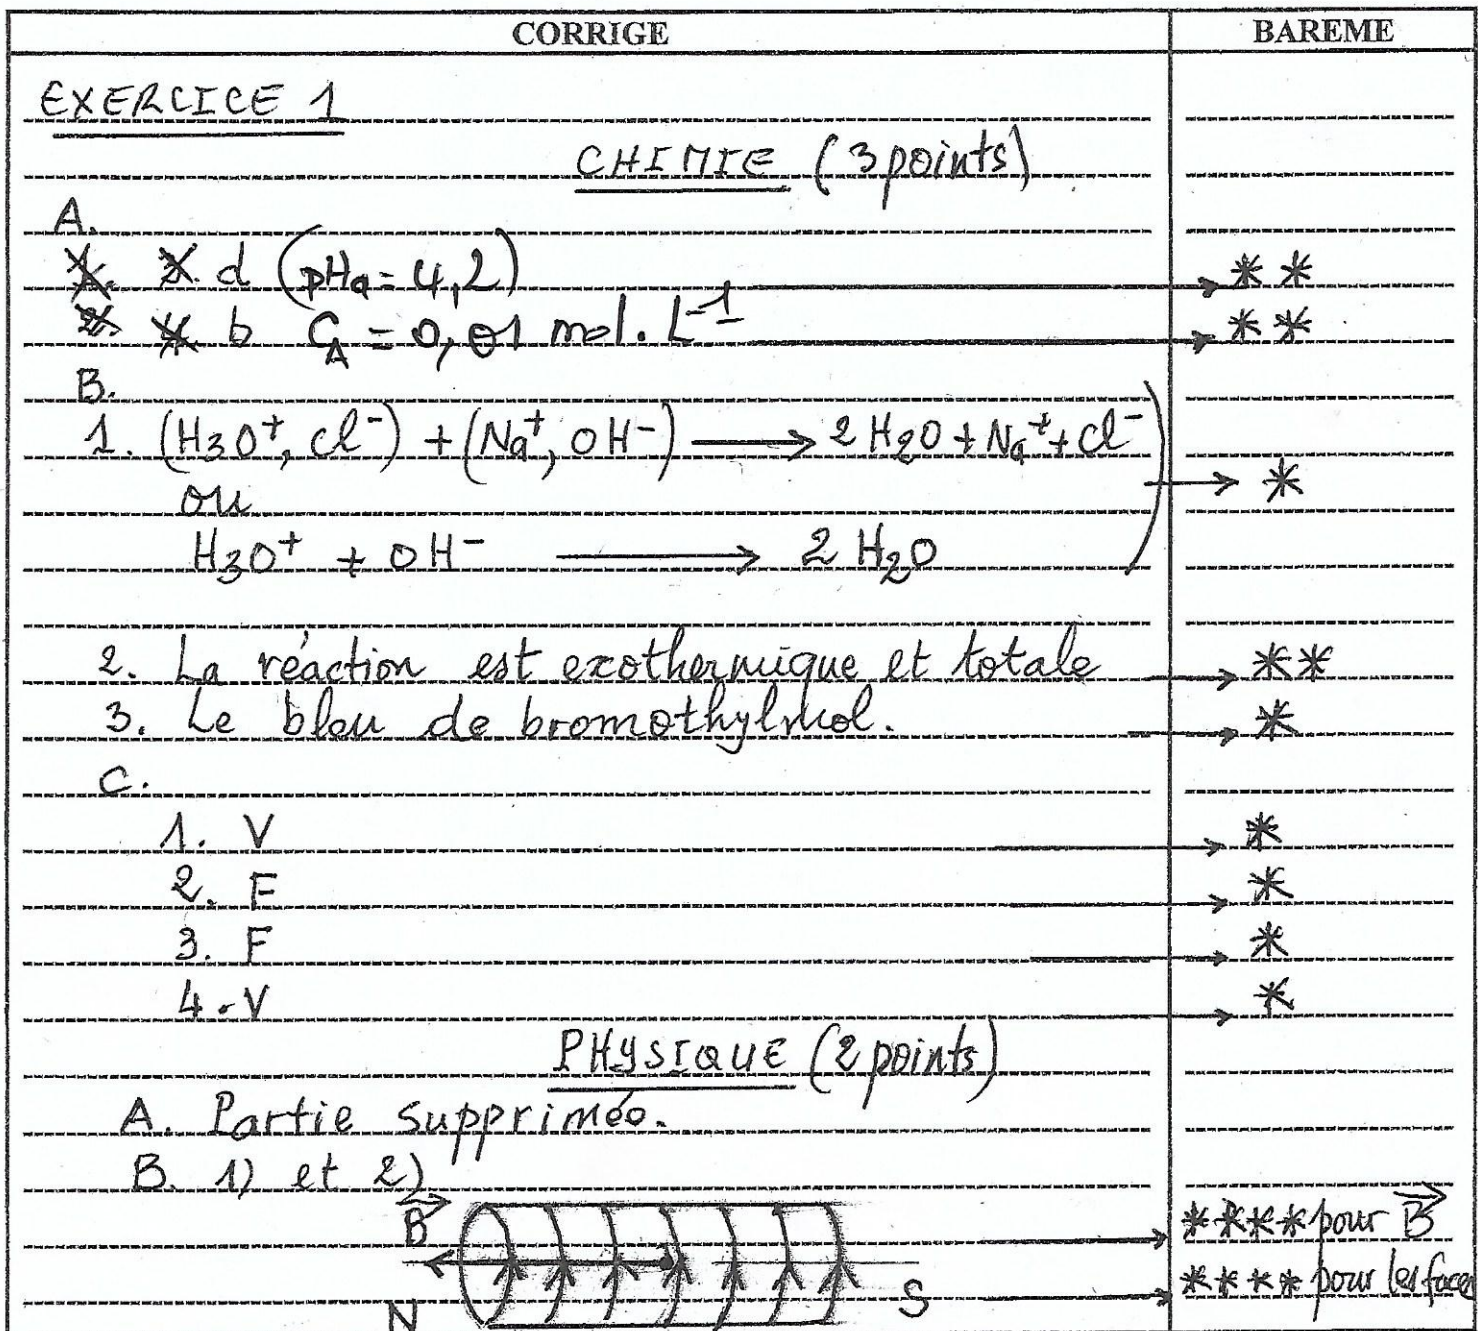 CORRIGE BAREME
EXERCICE 1
CHIMIE (3 points)
A.
d (pHa = 4,2) → * *
b CA = 0,01 mol. L-1 → * *
B.
1. (H3O+, Cl-) + (Na+, OH-) → 2 H2O + Na+ + Cl-
ou → *
H3O+ + OH- → 2 H2O
2. La réaction est exothermique et totale → * *
3. Le bleu de bromothylmol. → *
C.
1. V → *
2. F → *
3. F → *
4. V → *
PHYSIQUE (2 points)
A. Partie supprimée.
B. 1) et 2)
B → * * * * pour B
N S → * * * * pour les faces